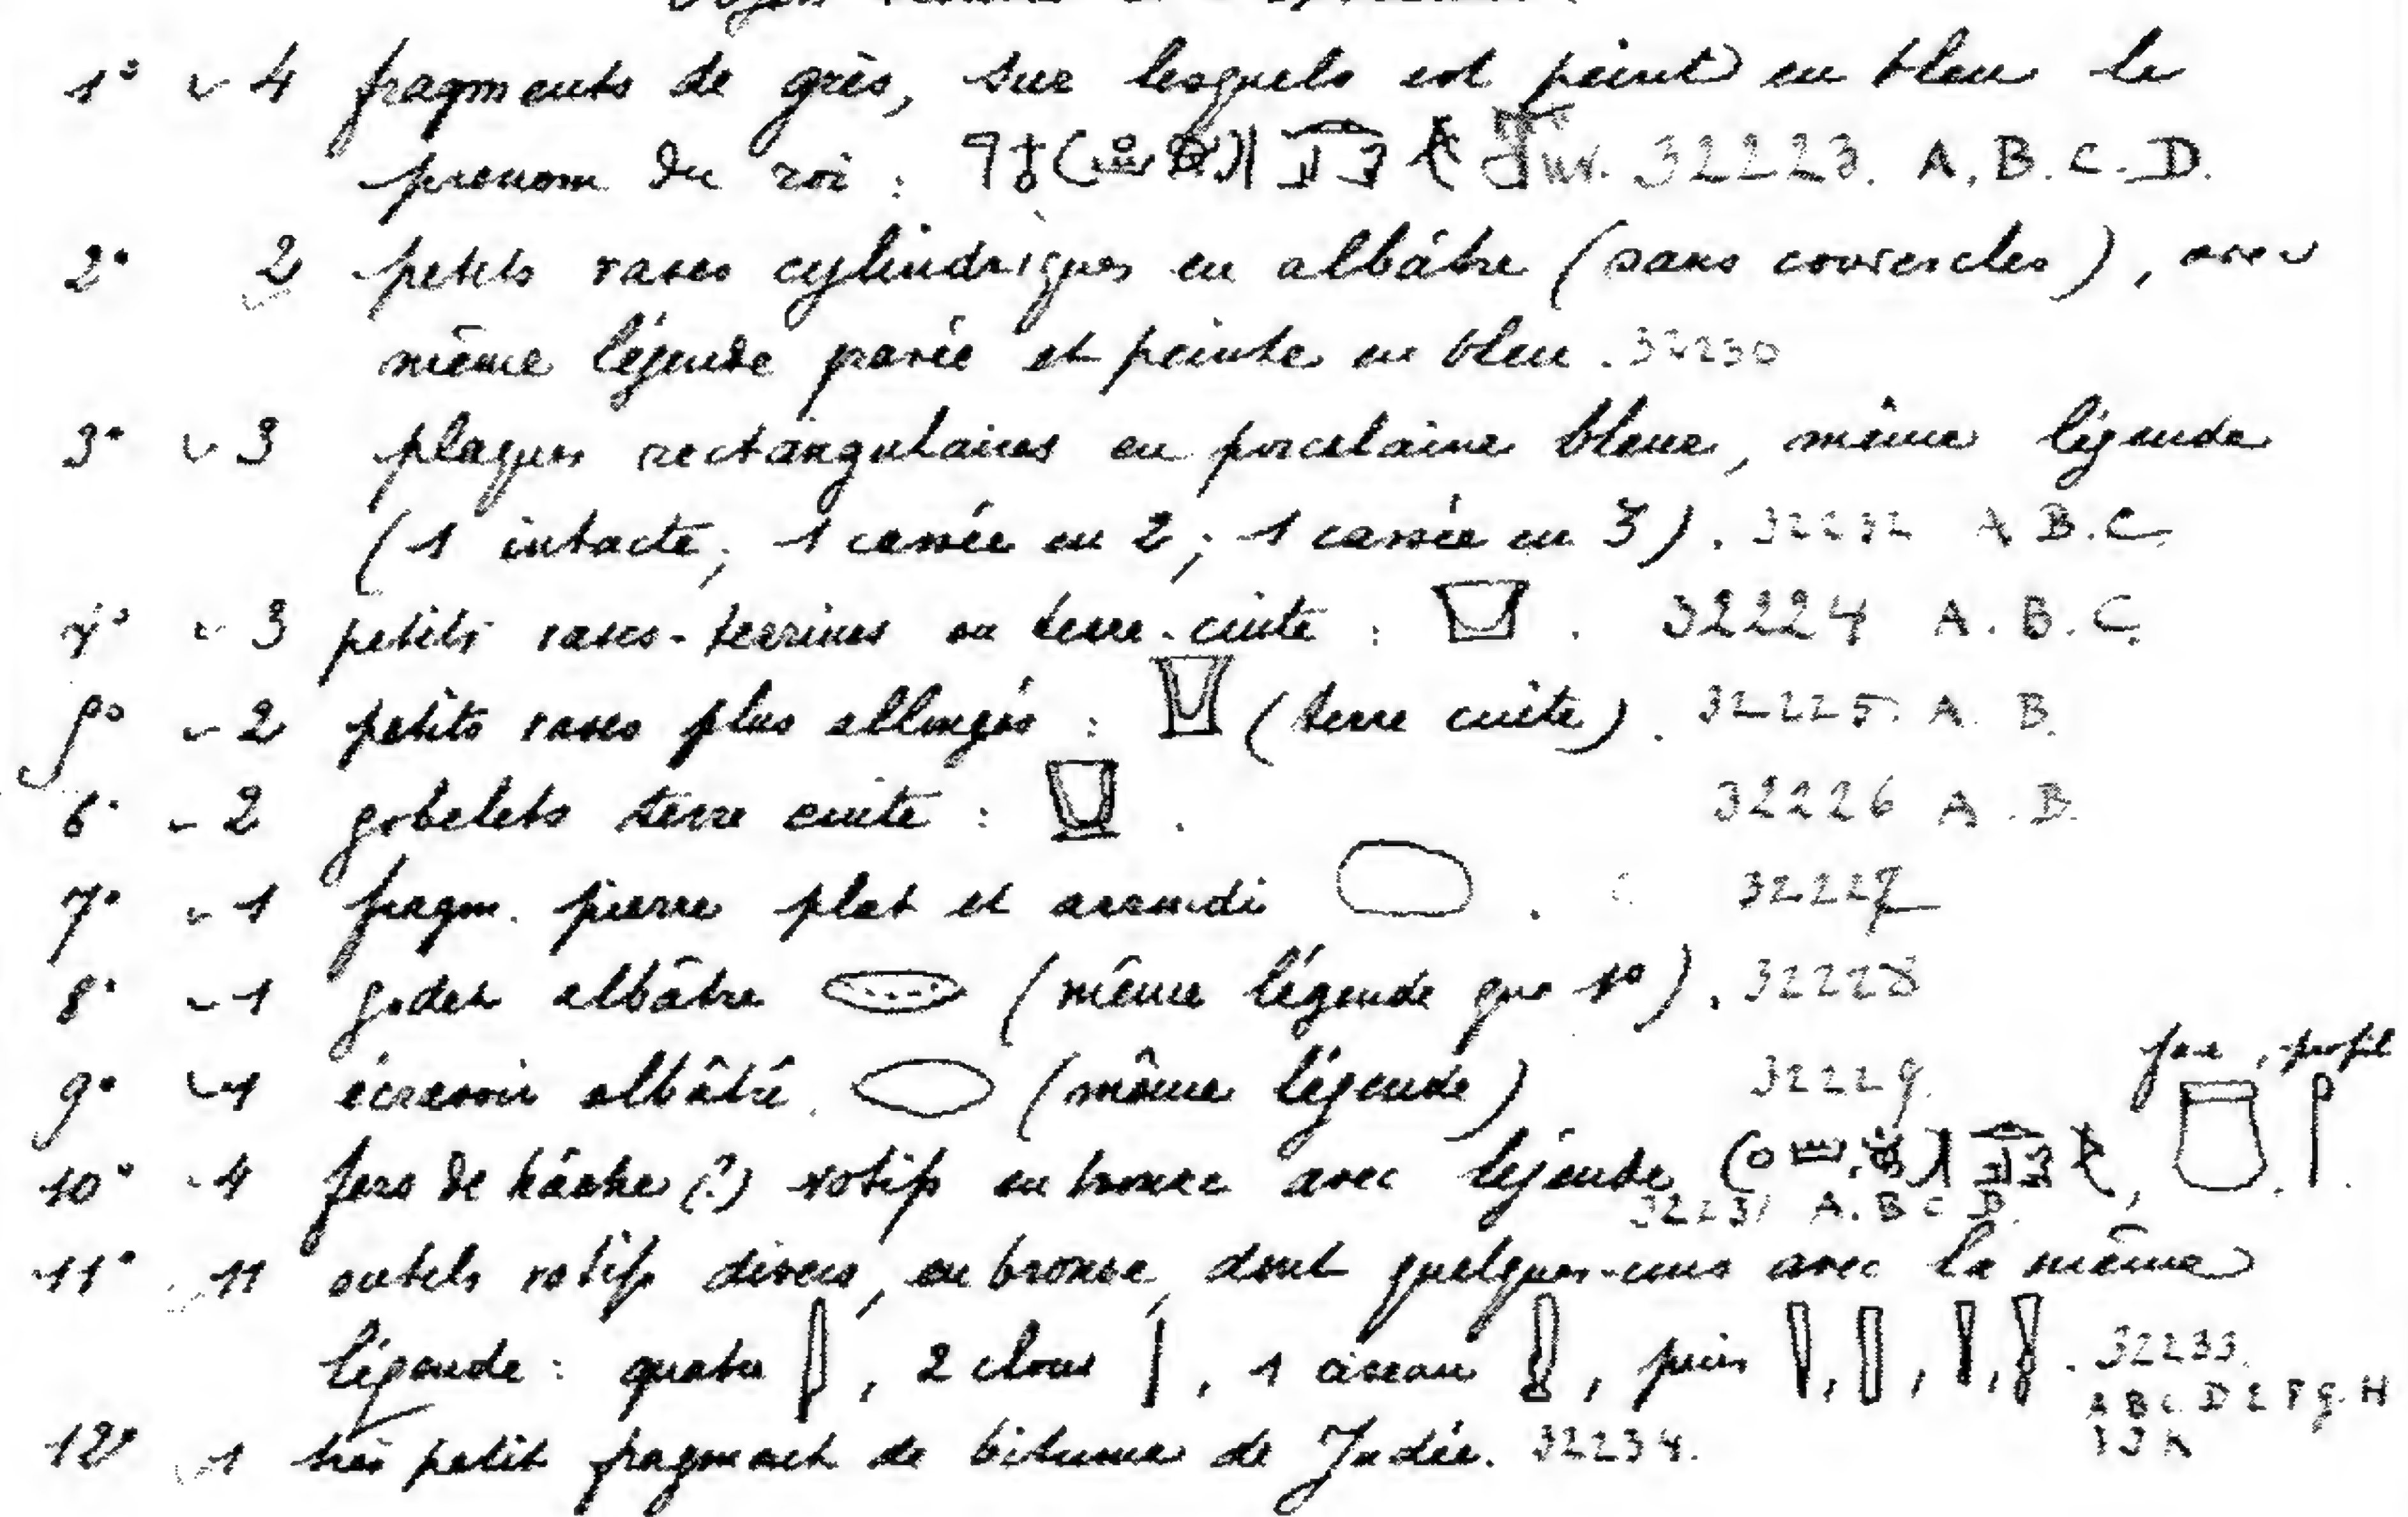 1° 4 fragments de grès, sur lesquels est peint en bleu le
prénom du roi : 32223. A. B. C. D.
2° 2 petits vases cylindriques en albâtre (sans couvercles), avec
même légende gravée et peinte en bleu. 32230
3° 3 plaques rectangulaires en porcelaine bleue, même légende
(1 intacte; 1 cassée en 2; 1 cassée en 3). 32232 A B. C.
4° 3 petits vases-terrines en terre cuite : . 32224 A. B. C.
5° 2 petits vases plus allongés : (terre cuite). 32225. A. B.
6° 2 gobelets terre cuite : . 32226 A. B.
7° 1 fragm. pierre plat et arrondi . 32227
8° 1 godet albâtre (même légende que 1°). 32228
9° 1 écrasoir albâtre. (même légende) 32229.
face, profil
10° 4 fers de hache (?) votifs en bronze avec légende
32231 A. B C D.
11° 11 outils votifs divers, en bronze, dont quelques-uns avec la même
légende : quatre , 2 clous , 1 ciseau , puis , , , . 32233.
A B C D E F g. H
I J K
12° 1 très petit fragment de bitume de Judée. 32234.